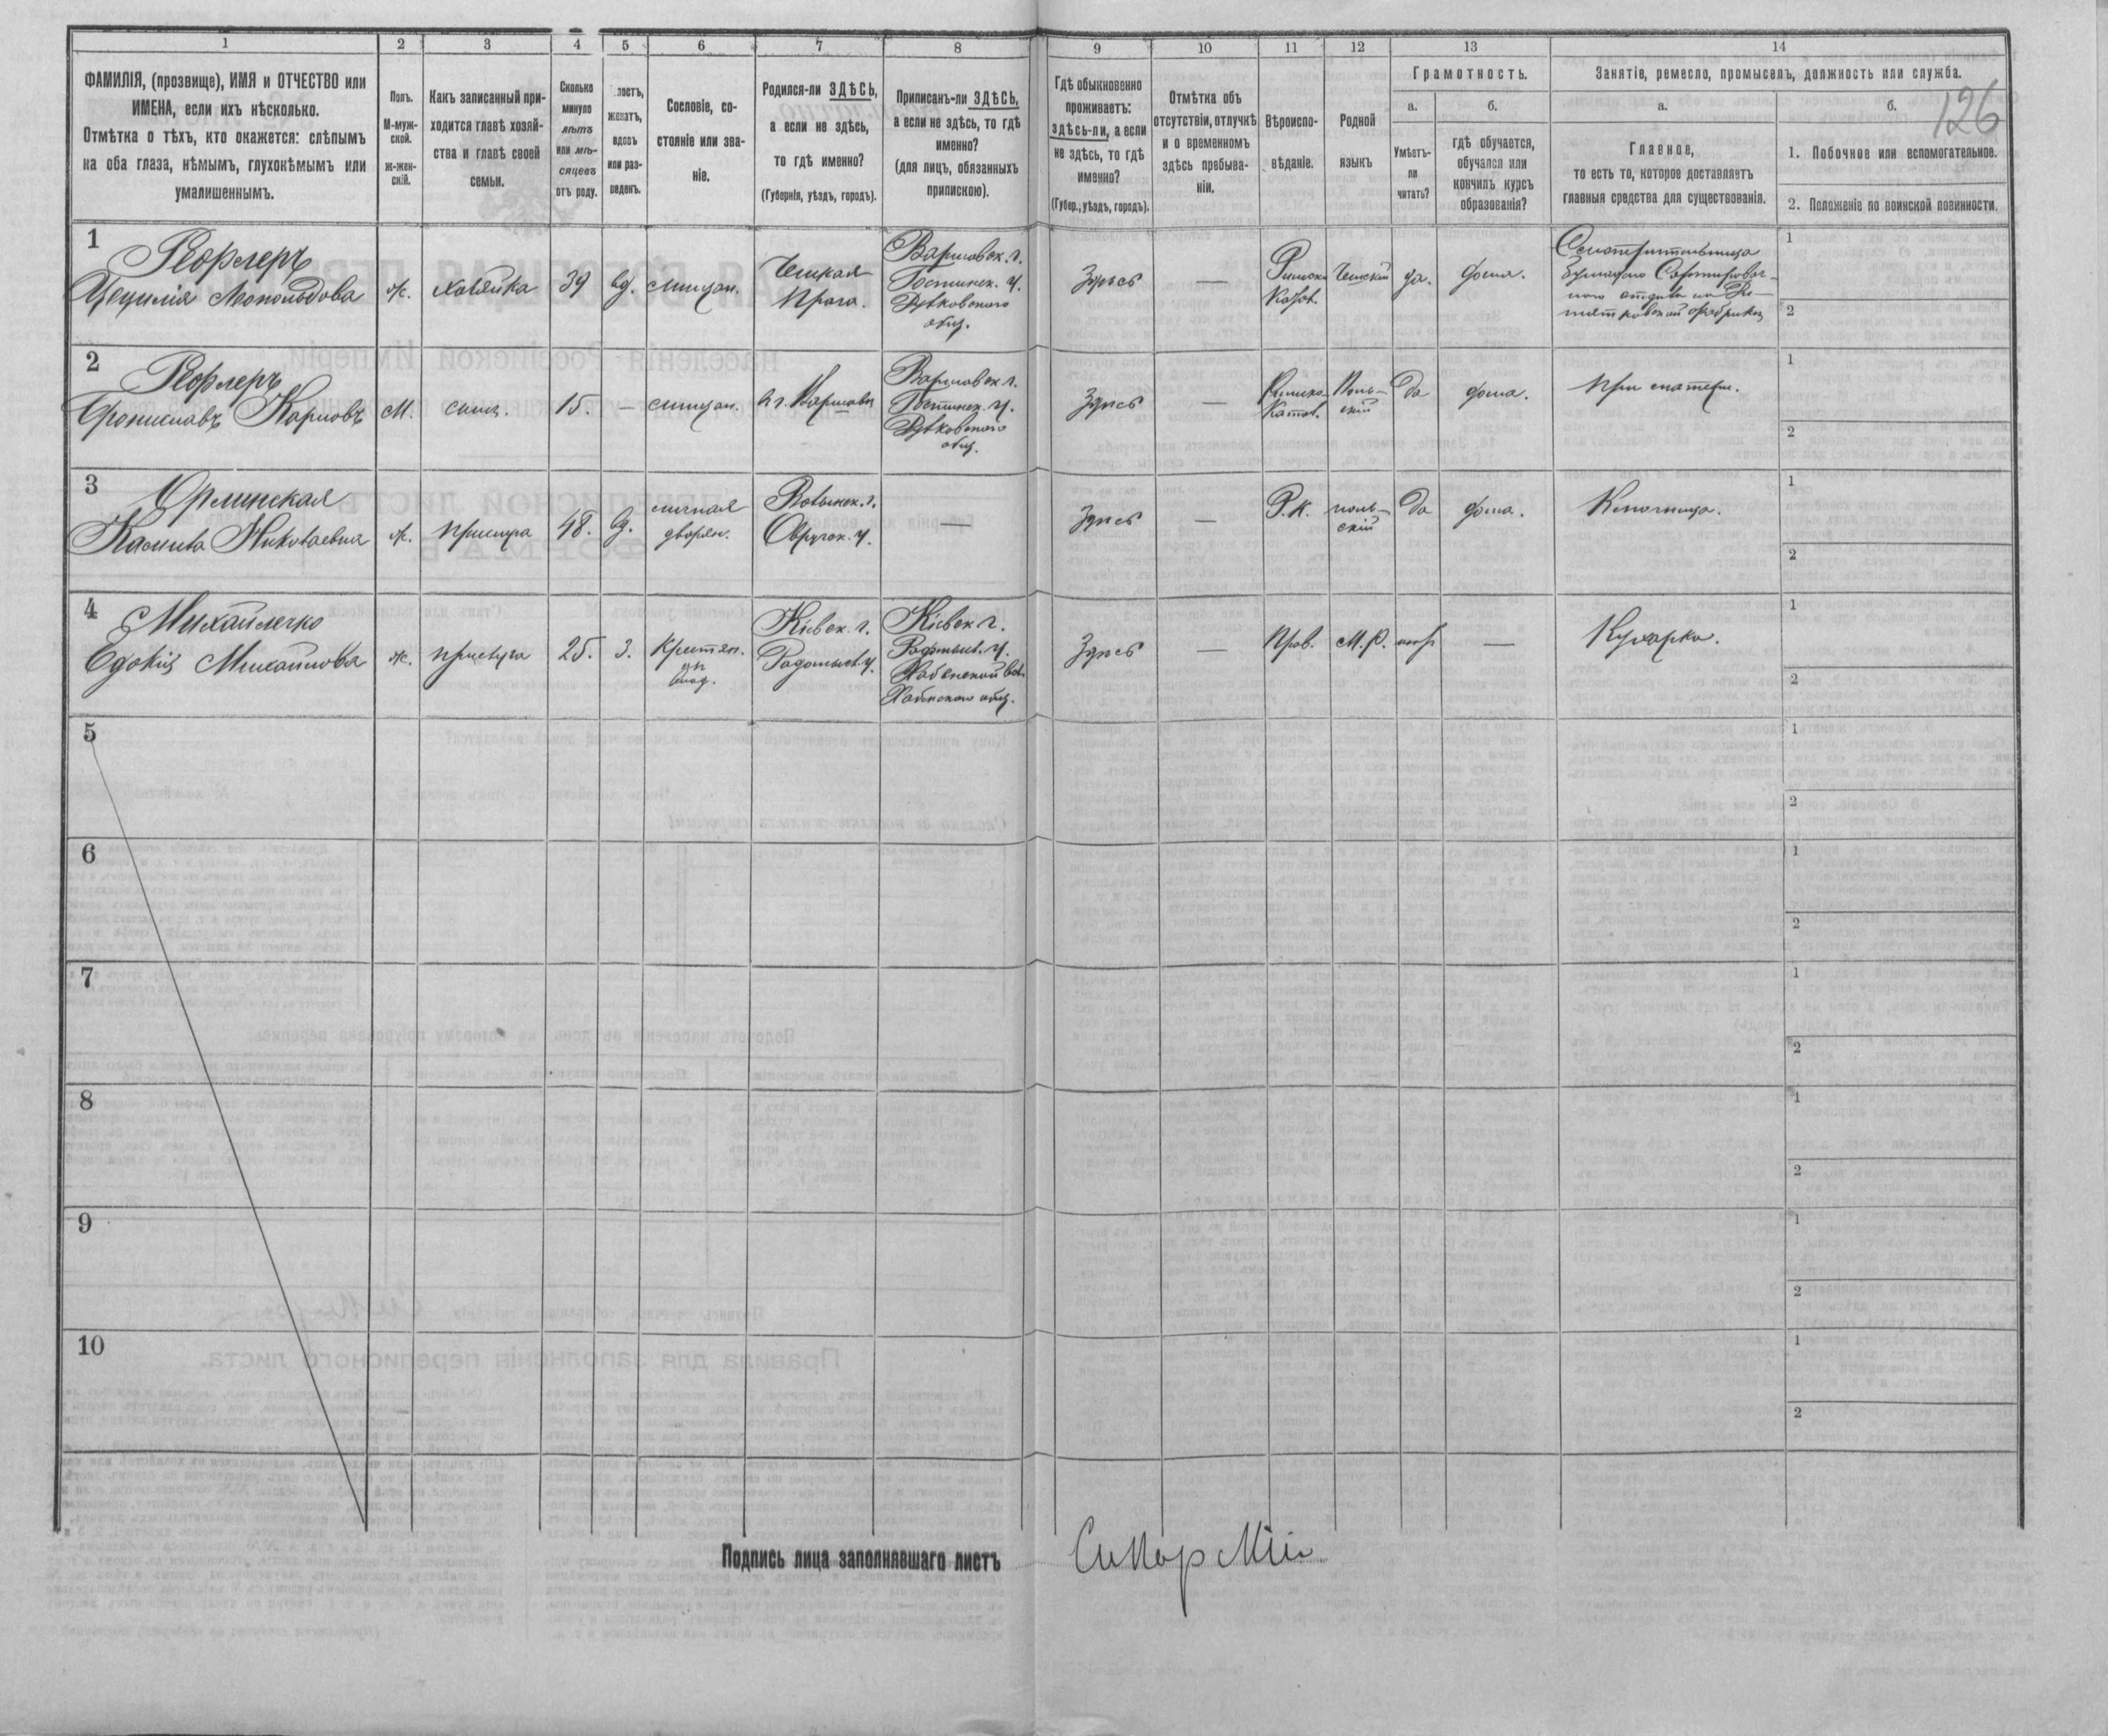 1 2 3 4 5 6 7 8 9 10 11 12 13 14
126
ФАМИЛІЯ, (прозвище), ИМЯ и ОТЧЕСТВО или
ИМЕНА, если ихъ нѣсколько.
Отмѣтка о тѣхъ, кто окажется: слѣпымъ
на оба глаза, нѣмымъ, глухонѣмымъ или
умалишеннымъ.
Полъ.
М-муж-
ской.
ж-жен-
скій.
Какъ записанный при-
ходится главѣ хозяй-
ства и главѣ своей
семьи.
Сколько
минуло
лѣтъ
или мѣ-
сяцевъ
отъ роду.
лостъ,
женатъ,
вдовъ
или раз-
веденъ.
Сословіе, со-
стояніе или зва-
ніе.
Родился-ли ЗДѢСЬ,
а если не здѣсь,
то гдѣ именно?
(Губернія, уѣздъ, городъ).
Приписанъ-ли ЗДѢСЬ,
а если не здѣсь, то гдѣ
именно?
(для лицъ, обязанныхъ
припискою).
Гдѣ обыкновенно
проживаетъ:
здѣсь-ли, а если
не здѣсь, то гдѣ
именно?
(Губер., уѣздъ, городъ).
Отмѣтка объ
отсутствіи, отлучкѣ
и о временномъ
здѣсь пребыва-
ніи.
Вѣроиспо-
вѣданіе.
Родной
языкъ
Грамотность.
а.
Умѣетъ-
ли
читать?
б.
гдѣ обучается,
обучался или
кончилъ курсъ
образованія?
Занятіе, ремесло, промыселъ, должность или служба.
а.
Главное,
то есть то, которое доставляетъ
главныя средства для существованія.
б.
1. Побочное или вспомогательное.
2. Положеніе по воинской повинности.
1
Цецилія
ж.
хозяйка
39
вд.
мѣщан.
Чешкая
Прага.
Варшавск. г.
Гостинск. у.
общ.
Здѣсь
—
Римско
Катол.
Чешскій
да.
дома.
Смотрительница
1
2
2
Брониславъ Карловъ
М.
сынъ.
15.
—
мѣщан.
в г. Варшавѣ
Варшавск. г.
Гостинск. у.
общ.
Здѣсь
—
Римско
Катол.
Поль-
скій
Да
дома.
при матери.
1
2
3
Орлинская
Камила Николаевна
ж.
прислуга
48.
д.
личная
дворян.
Волынск. г.
Овручск. у.
—
Здѣсь
—
Р. К.
поль-
скій
Да
дома.
Ключница.
1
2
4
Михайленко
Михайлова
ж.
прислуга
25.
З.
Крестян.
Кіевск. г.
Радомысл. у.
Кіевск г.
Радомысл. у.
Хабенской вол.
общ.
Здѣсь
—
Прав.
М. Р.
—
Кухарка.
1
2
5
1
2
6
1
2
7
1
2
8
1
2
9
1
2
10
1
2
Подпись лица заполнявшаго листъ